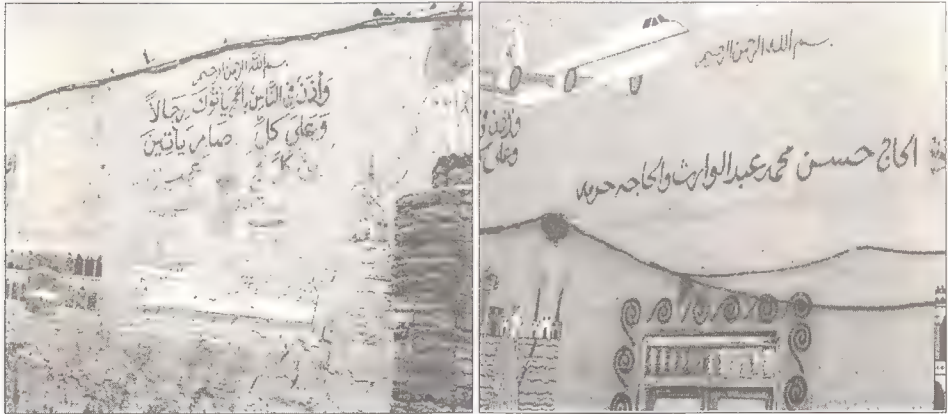 بسم الله الرحمن الرحيم
وأذن في الناس بالحج يأتوك رجالاً
وعلى كل ضامر يأتين
بسم الله الرحمن الرحيم
وأذن و
وعلى ك
الحاج حسن محمد عبد الوارث والحاجه